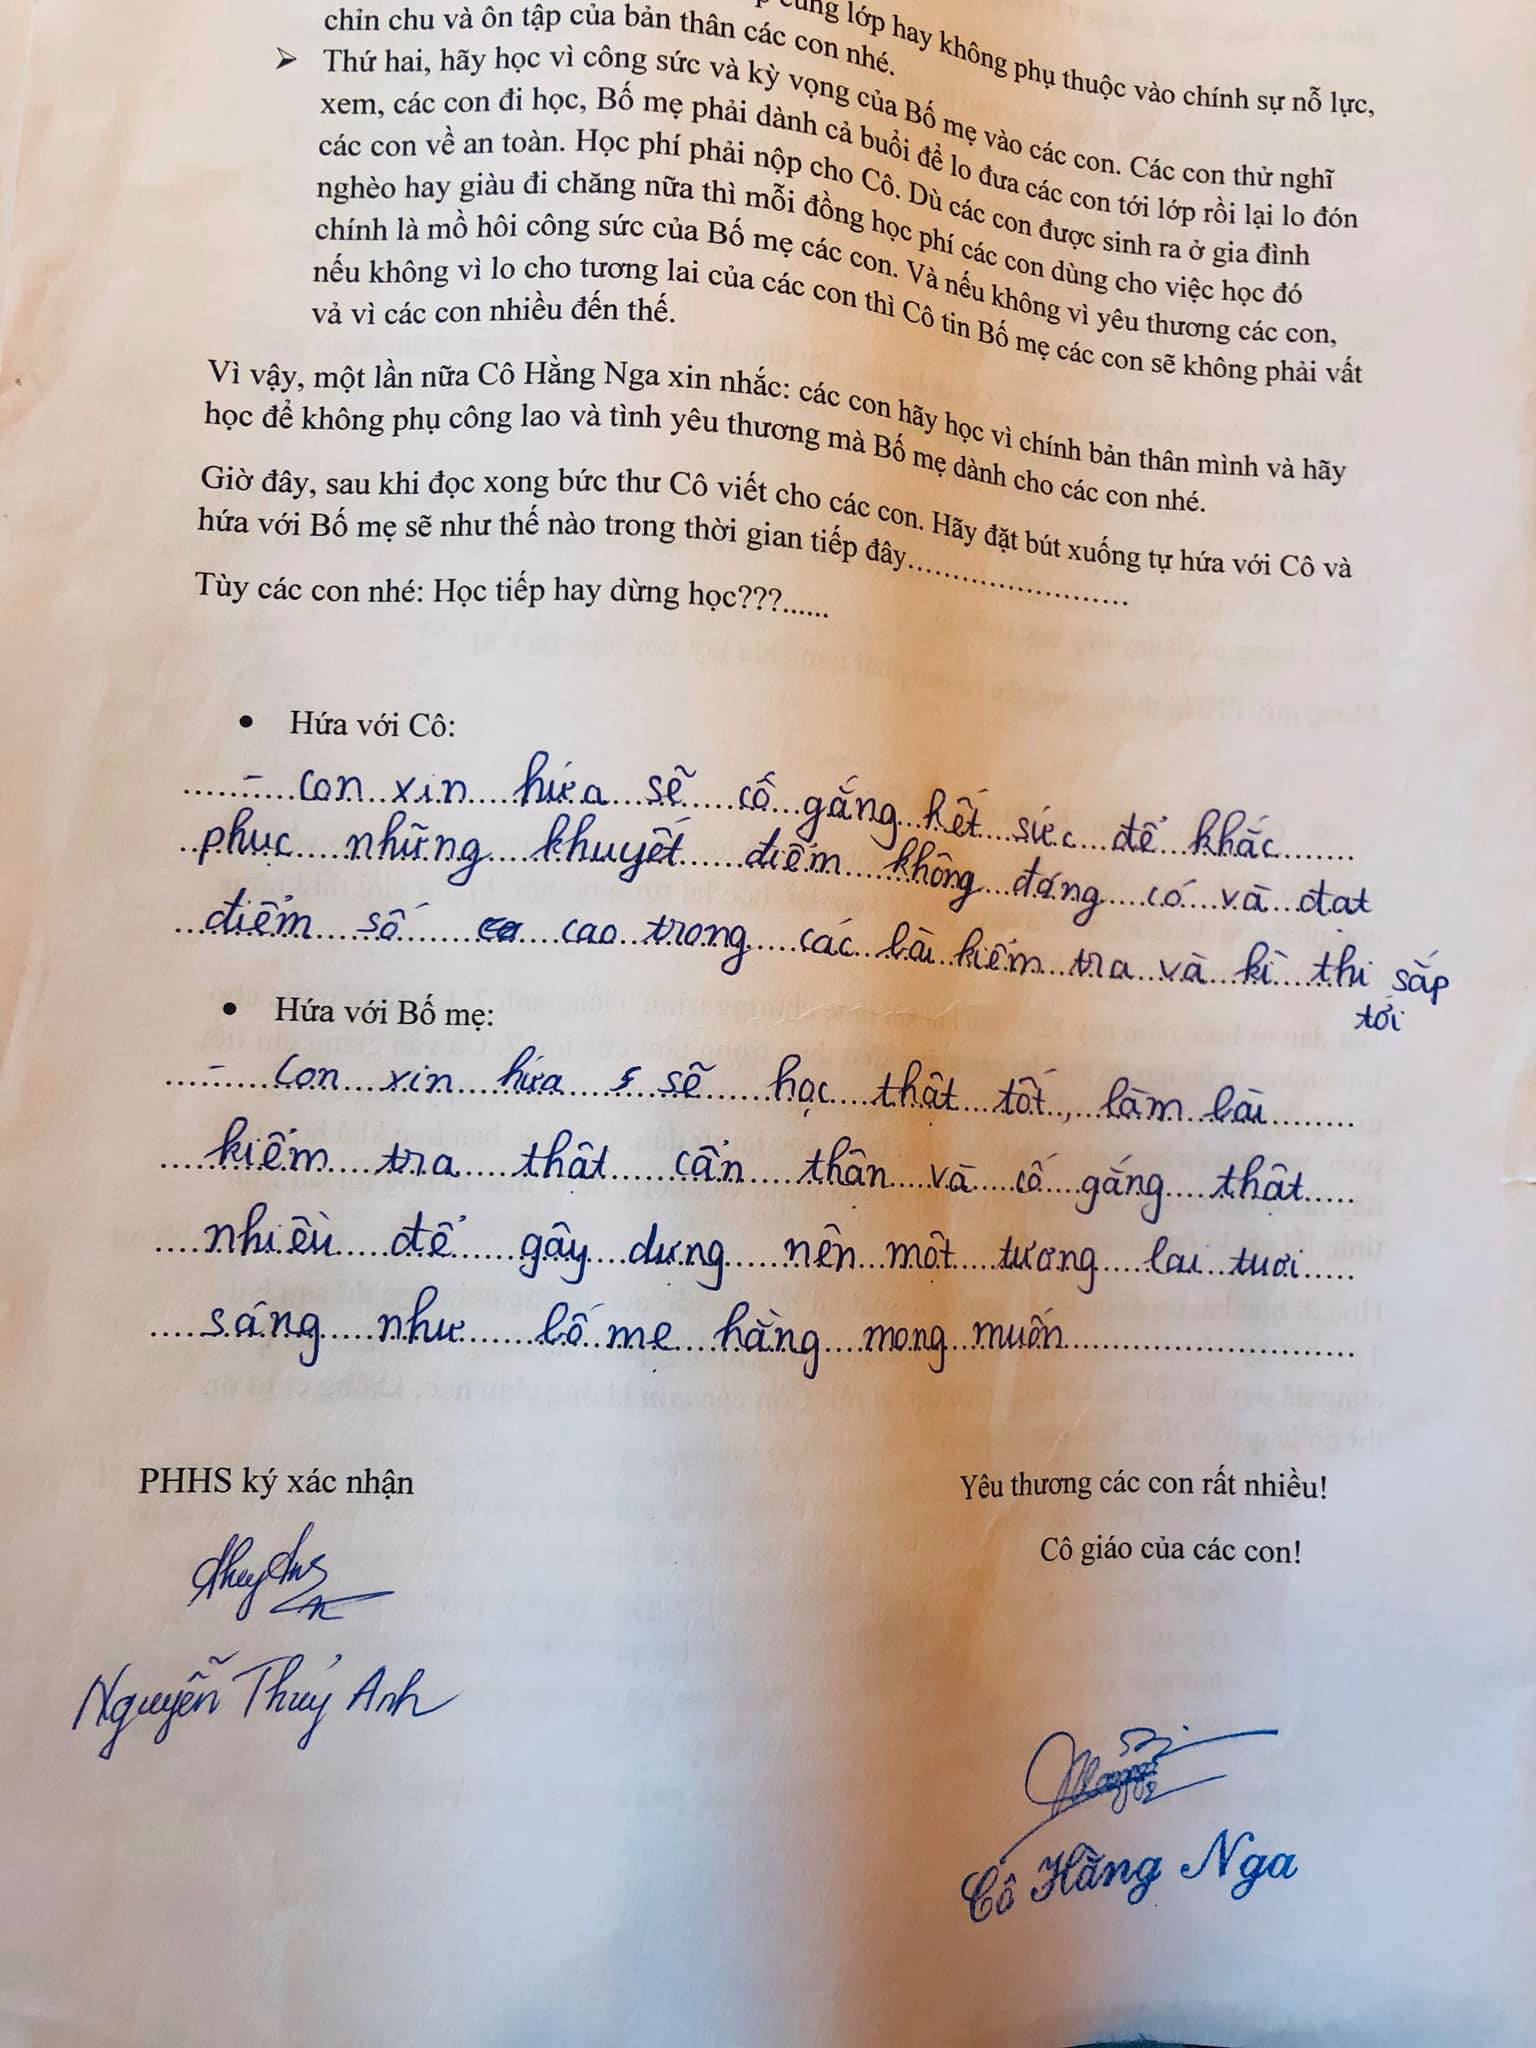 cùng lớp hay không phụ thuộc vào chính sự nỗ lực,
chỉn chu và ôn tập của bản thân các con nhé.
➢ Thứ hai, hãy học vì công sức và kỳ vọng của Bố mẹ vào các con. Các con thử nghĩ
xem, các con đi học, Bố mẹ phải dành cả buổi để lo đưa các con tới lớp rồi lại lo đón
các con về an toàn. Học phí phải nộp cho Cô. Dù các con được sinh ra ở gia đình
nghèo hay giàu đi chăng nữa thì mỗi đồng học phí các con dùng cho việc học đó
chính là mồ hôi công sức của Bố mẹ các con. Và nếu không vì yêu thương các con,
nếu không vì lo cho tương lai của các con thì Cô tin Bố mẹ các con sẽ không phải vất
vả vì các con nhiều đến thế.
Vì vậy, một lần nữa Cô Hằng Nga xin nhắc: các con hãy học vì chính bản thân mình và hãy
học để không phụ công lao và tình yêu thương mà Bố mẹ dành cho các con nhé.
Giờ đây, sau khi đọc xong bức thư Cô viết cho các con. Hãy đặt bút xuống tự hứa với Cô và
hứa với Bố mẹ sẽ như thế nào trong thời gian tiếp đây.........................
Tùy các con nhé: Học tiếp hay dừng học???......
• Hứa với Cô:
- Con xin hứa sẽ cố gắng hết sức để khắc
phục những khuyết điểm không đáng có và đạt
điểm số cao trong các bài kiểm tra và kì thi sắp
tới
• Hứa với Bố mẹ:
- Con xin hứa sẽ học thật tốt, làm bài
kiểm tra thật cẩn thân và cố gắng thật
nhiều để gây dựng nên một tương lai tươi
sáng như bố mẹ hằng mong muốn
PHHS ký xác nhận
Yêu thương các con rất nhiều!
Cô giáo của các con!
Nguyễn Thuỷ Anh
Cô Hằng Nga